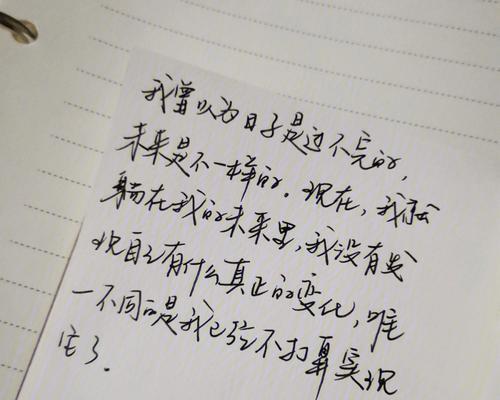 我曾以为日子是过不完的,
未来是不一样的. 现在, 我就
躺在我的未来里, 我没有发
现自己有什么真正的变化, 唯
一不同的是我已经不打算实现
它了.